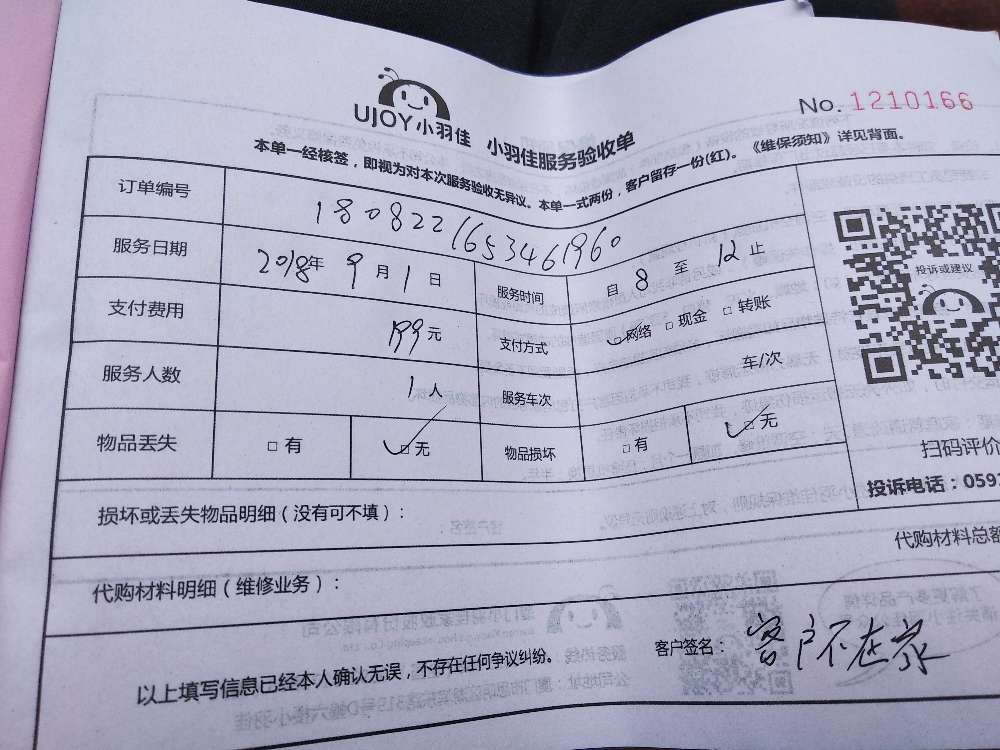 No. 1210166
UJOY小羽佳 小羽佳服务验收单
本单一经核签，即视为对本次服务验收无异议。本单一式两份，客户留存一份(红)。《维保须知》详见背面。
订单编号 180822165346960
服务日期 2018年 9月 1日 服务时间 自 8 至 12 止
支付费用 199元 支付方式 网络 □现金 □转账
服务人数 1人 服务车次 车/次
物品丢失 □有 □无 物品损坏 □有 □无
投诉或建议
扫码评价
投诉电话：059
损坏或丢失物品明细（没有可不填）：
代购材料总额
代购材料明细（维修业务）：
以上填写信息已经本人确认无误，不存在任何争议纠纷。
客户签名：客户不在家